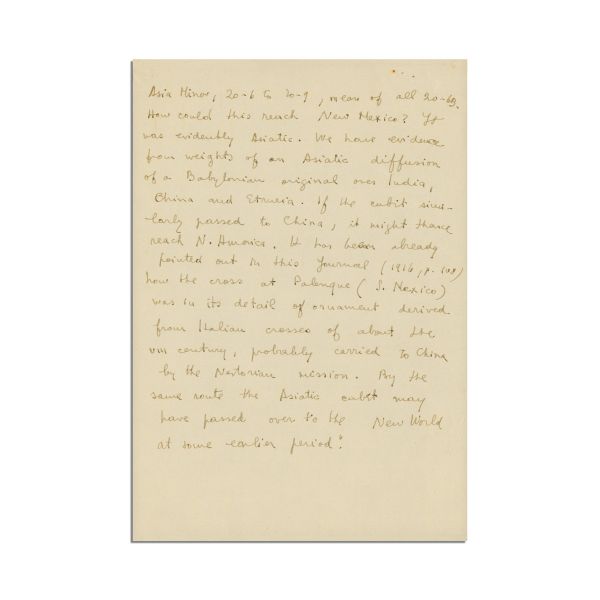 Asia Minor, 20-6 to 20-9, mean of all 20-63.
How could this reach New Mexico? It
was evidently Asiatic. We have evidence
from weights of an Asiatic diffusion
of a Babylonian original over India,
China and Etruria. If the cubit simi-
larly passed to China, it might thence
reach N. America. It has been already
pointed out in this Journal (1916, p.
how the cross at Palenque (S. Mexico)
was in its detail of ornament derived
from Italian crosses of about the
VIII century, probably carried to China
by the Nestorian mission. By the
same route the Asiatic cubit may
have passed over to the New World
at some earlier period".